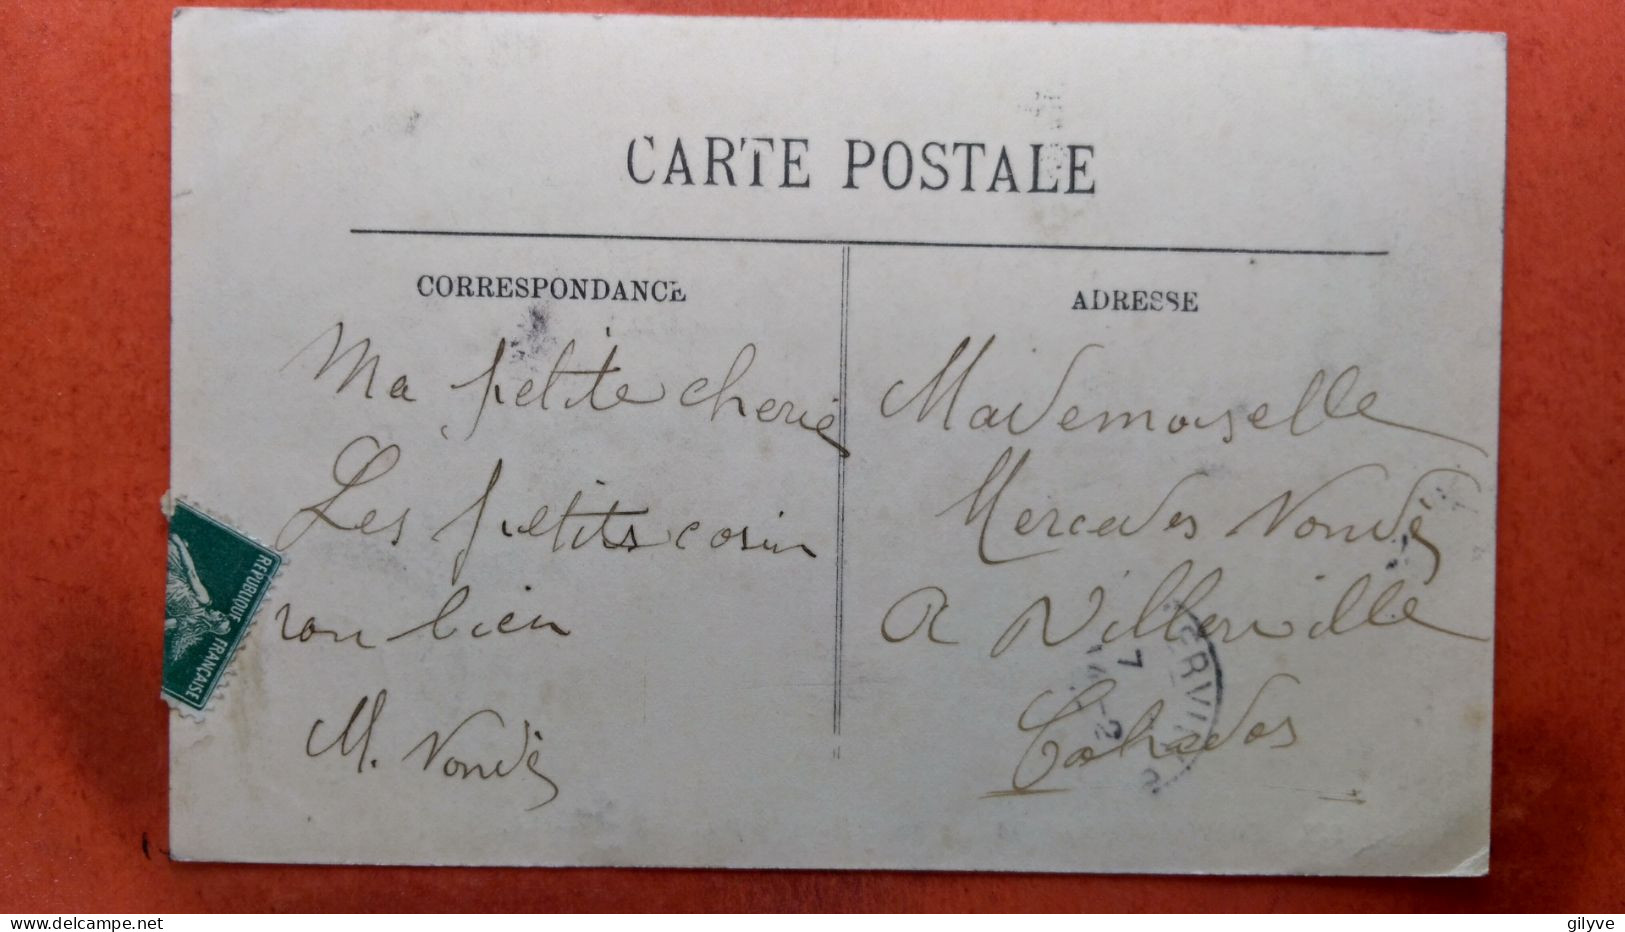 CARTE POSTALE
CORRESPONDANCE
Ma petite cherie
Les petits cosin
von bien
M. Vondé
ADRESSE
Mademoiselle
Mercedes Vondé
A Villerville
Calvados
REPUBLIQUE FRANÇAISE
ERVIL
7
gilyve